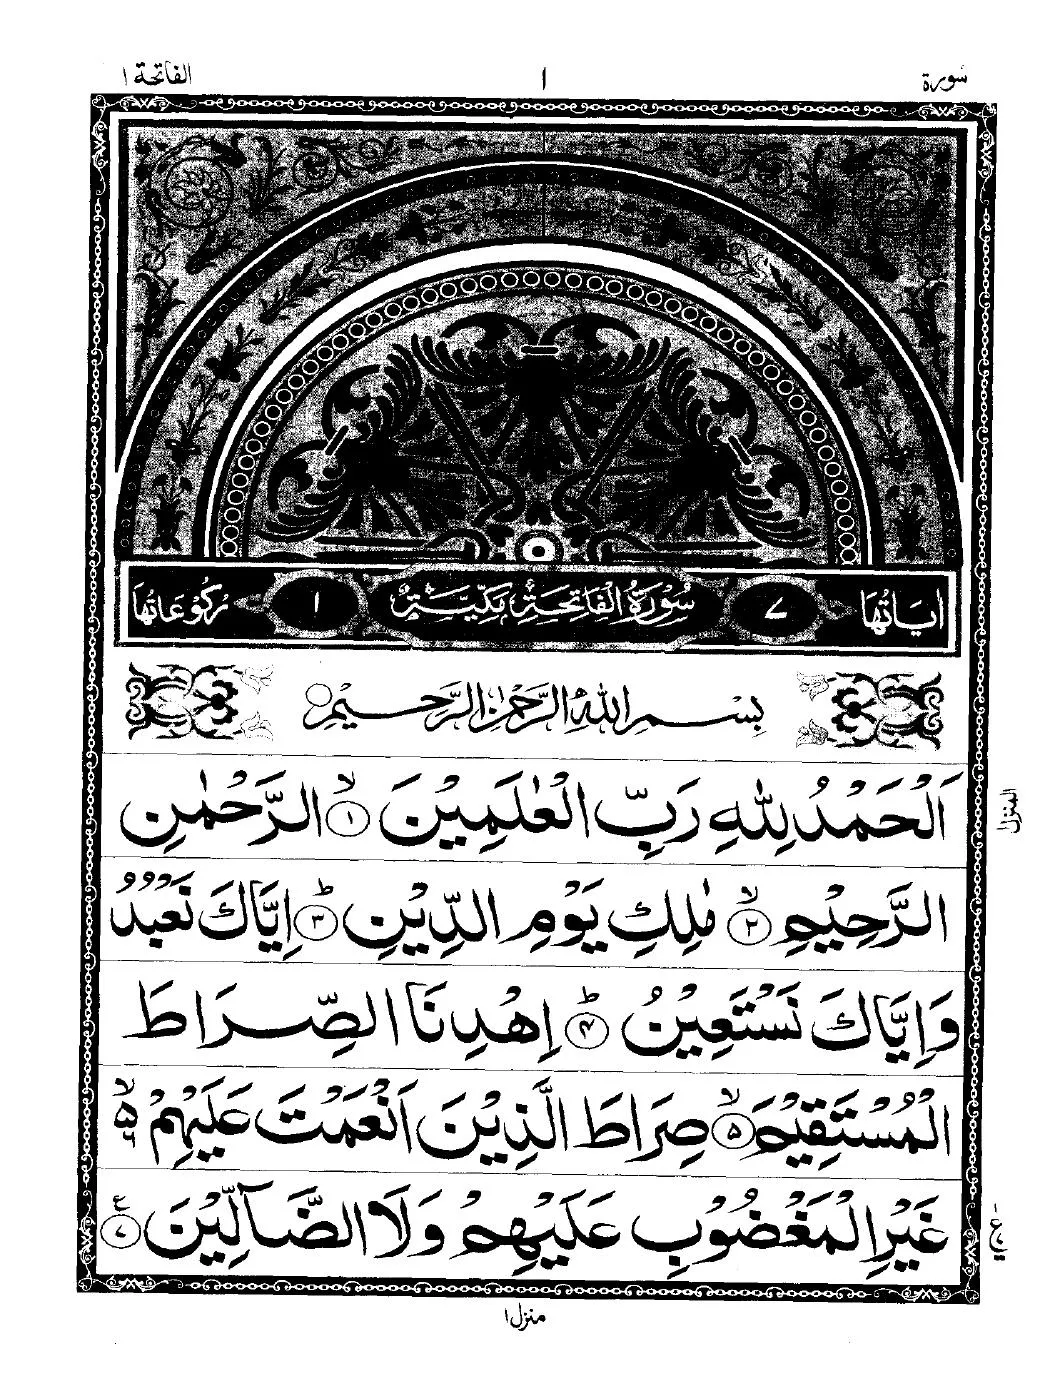 سُورة ١ الفاتحة ١
اٰيَاتُهَا ٧ سُوْرَةُ الْفَاتِحَةِ مَكِّيَّةٌ ١ رُكُوْعَاتُهَا
بِسْمِ اللّٰهِ الرَّحْمٰنِ الرَّحِيْمِ
اَلْحَمْدُ لِلّٰهِ رَبِّ الْعٰلَمِيْنَ ۙ‏﴿۱﴾ الرَّحْمٰنِ
الرَّحِيْمِ ۙ‏﴿۲﴾ مٰلِكِ يَوْمِ الدِّيْنِ ؕ‏﴿۳﴾ اِيَّاكَ نَعْبُدُ
وَاِيَّاكَ نَسْتَعِيْنُ ؕ‏﴿۴﴾ اِهْدِنَا الصِّرَاطَ
الْمُسْتَقِيْمَ ۙ‏﴿۵﴾ صِرَاطَ الَّذِيْنَ اَنْعَمْتَ عَلَيْهِمْ ۙ۬ ۵ ۶
غَيْرِ الْمَغْضُوْبِ عَلَيْهِمْ وَلَا الضَّآلِّيْنَ ﴿۷﴾ ع
المنزل
منزل ١